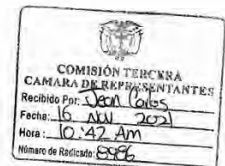 COMISIÓN TERCERA
CAMARA DE REPRESENTANTES
Recibido Por: Jean Carlos
Fecha: 16 NOV 2021
Hora: 10:42 AM
Número de Radicado: 8996